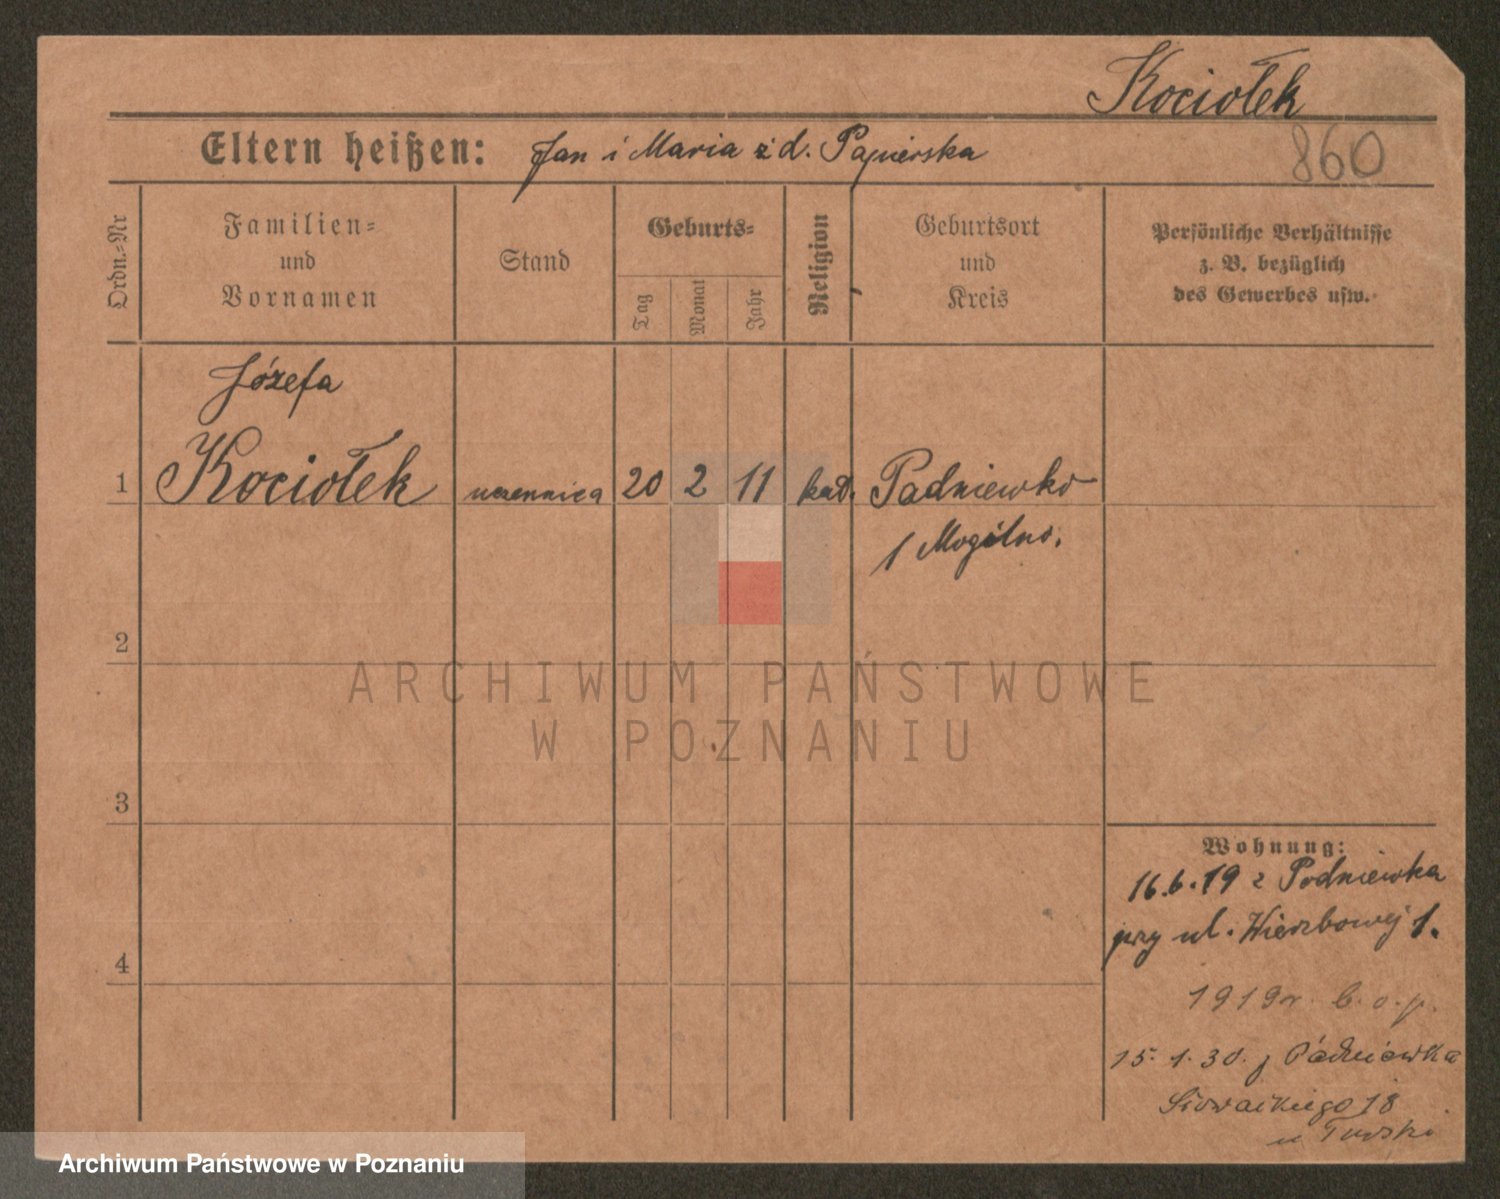 Kociołek
Eltern heißen: Jan i Maria z d. Papierska
860
Ordn.-Nr
Familien-
und
Vornamen
Stand
Geburts-
Tag
Monat
Jahr
Religion
Geburtsort
und
Kreis
Persönliche Verhältnisse
z. B. bezüglich
des Gewerbes usw.
Józefa
1 Kociołek uczennica 20 2 11 kat. Padniewko
/ Mogilno.
2
3
4
Wohnung:
16.6.19 z Podniewka
przy ul. Wierzbowej 1.
1919 r. b. o. p.
15. 1. 30. z Padniewka
18
u
ARCHIWUM PAŃSTWOWE
W POZNANIU
Archiwum Państwowe w Poznaniu